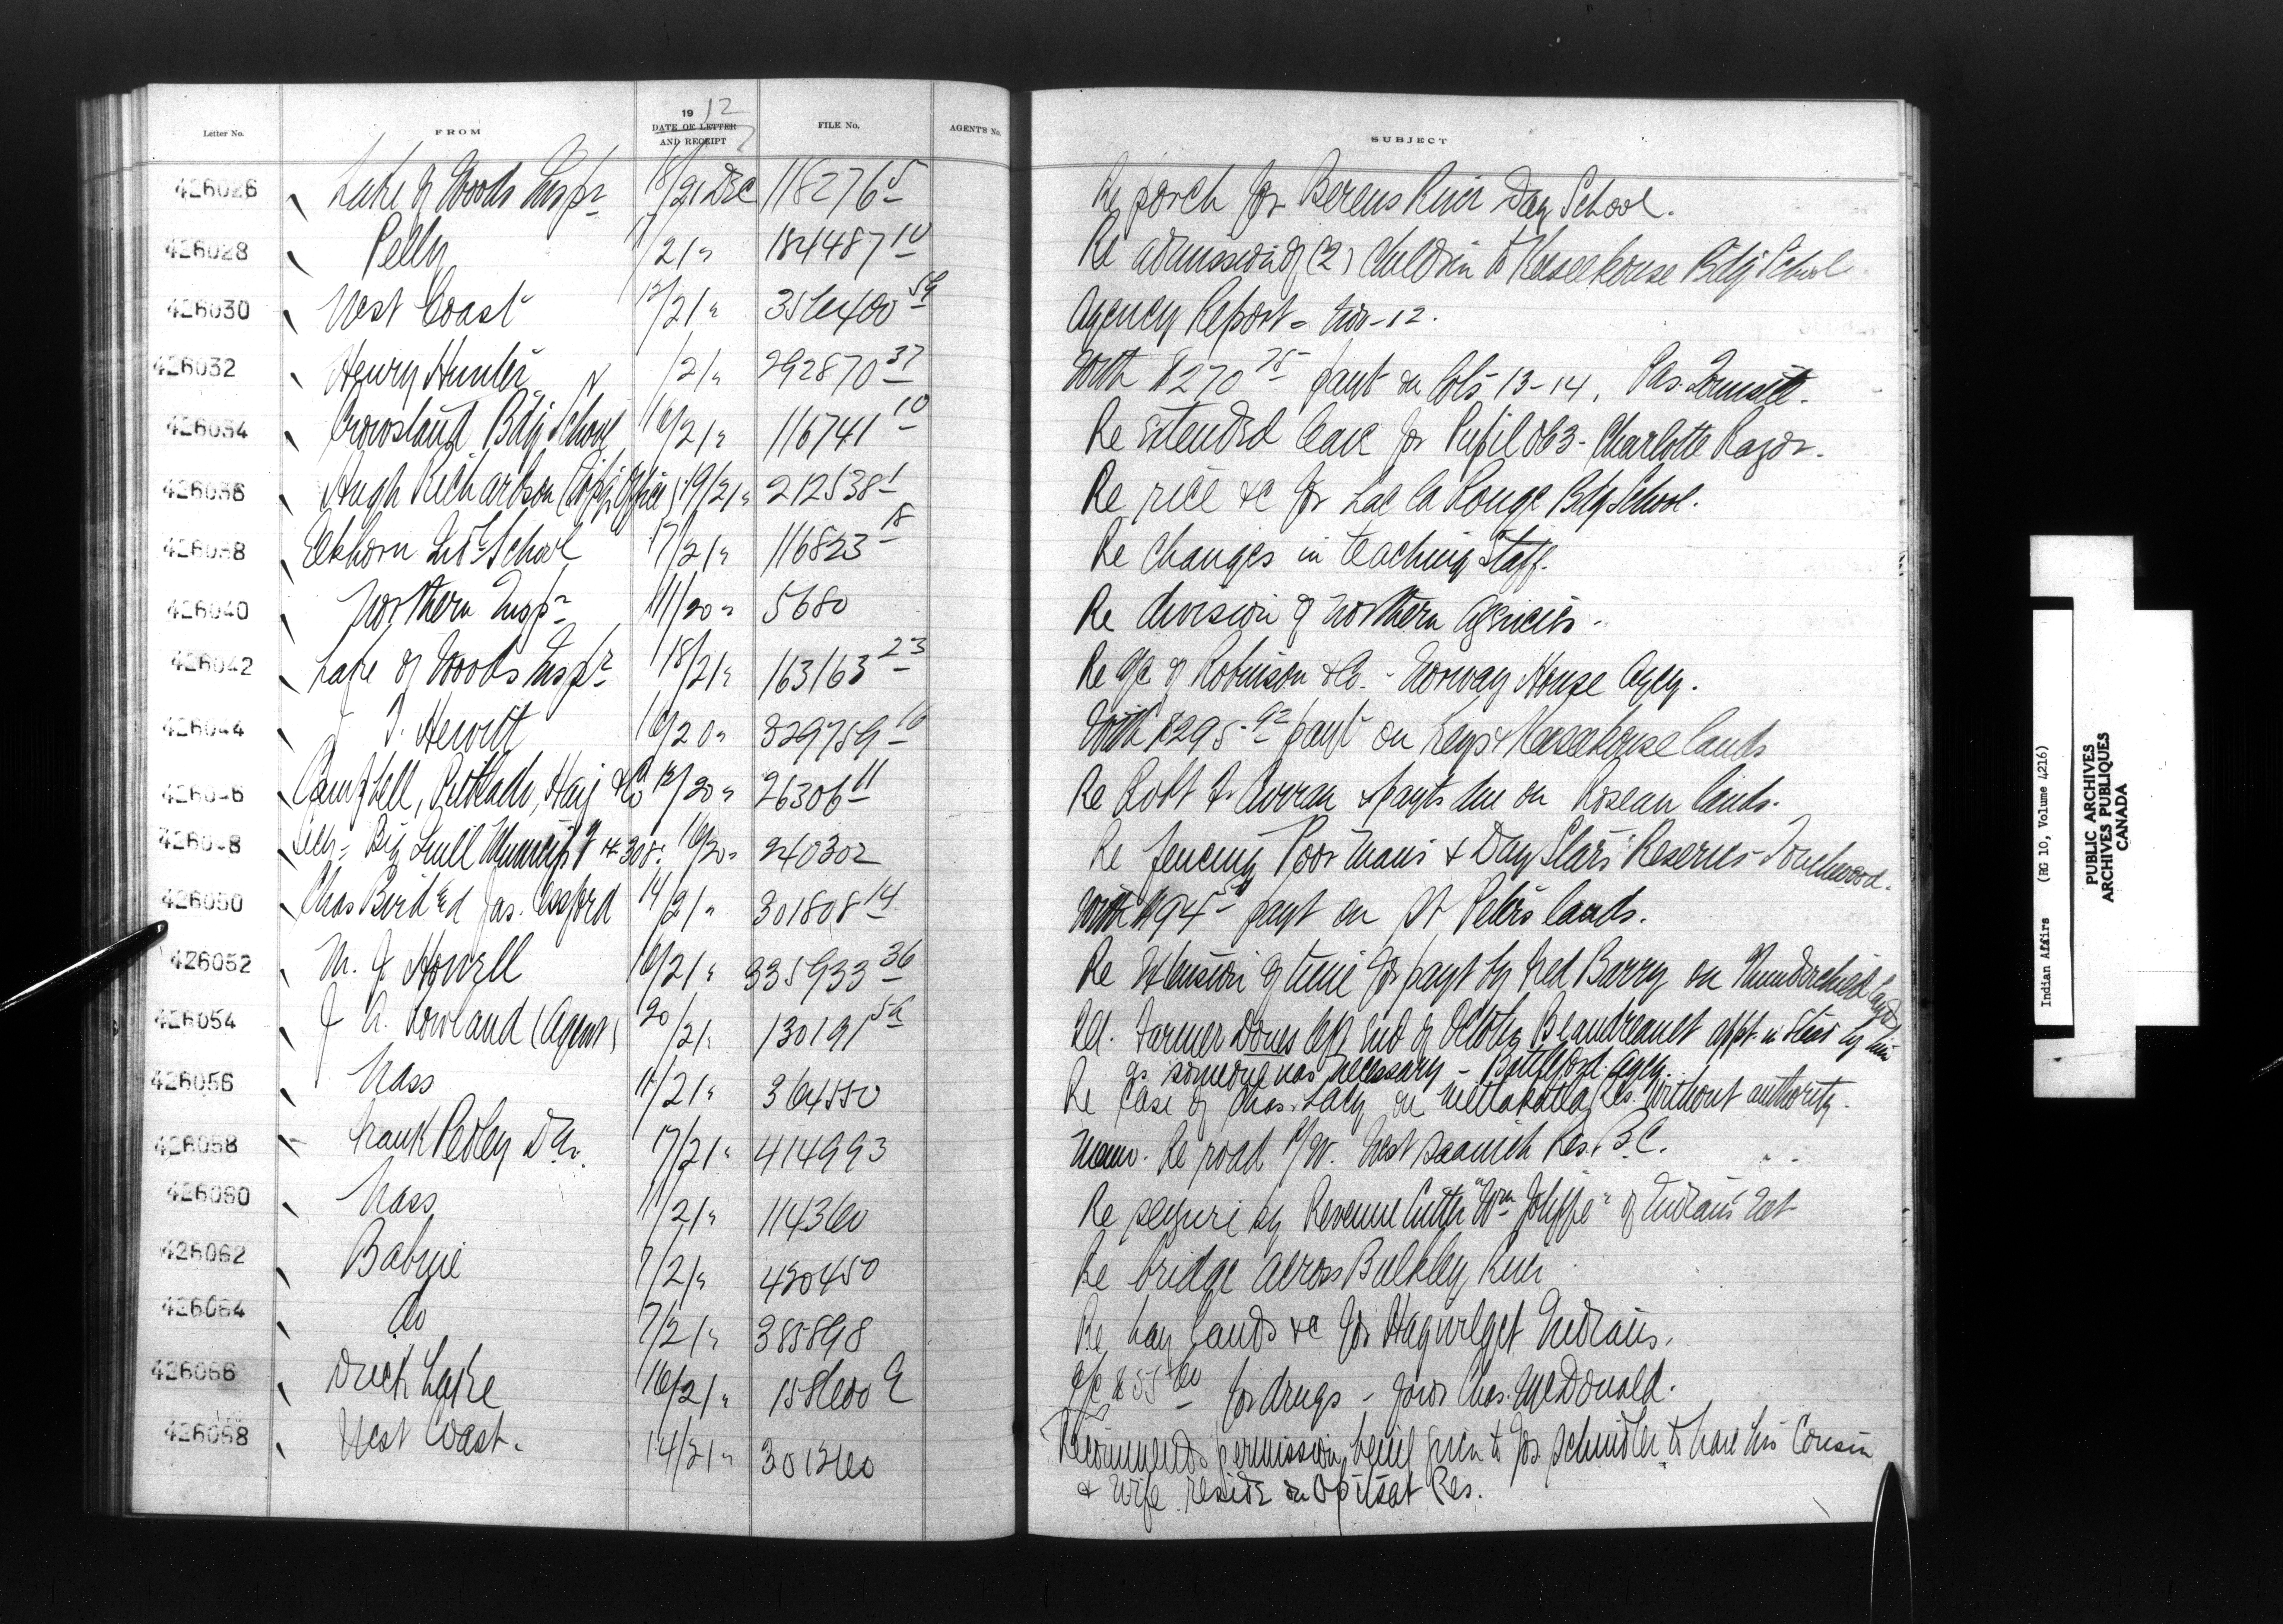 Letter No. FROM 1912 DATE OF LETTER AND RECEIPT FILE No. AGENT'S No. SUBJECT
426026 Lake of Woods Insptr 18/21 Dec 118276-5 Re porch for Berens River Day School.
426028 Pelly /21 " 184487-10 Re admission of (2) children to Keeseekouse Bdg School.
426030 West Coast 13/21 " 356400-59 Agency Report - Nov-12.
426032 Henry Hunter /21 " 292870-37 With $270 75 payt on lots 13-14,
426034 Crowstand Bdg School 16/21 " 116741-10 Re extended leave for Pupil 063 - Charlotte Razor.
426036 Hugh Richardson 19/21 " 212538-1 Re rice &c for Lac la Ronge Bdg School.
426038 Elkhorn Ind School 17/21 " 116823-18 Re changes in teaching staff.
426040 Northern Insptr 11/20 " 5680 Re division of Northern Agencies -
426042 Lake of Woods Insptr 18/21 " 163163-23 Re a/c of Robinson & Co. - Norway House Agcy.
426044 J. T. Hewitt 16/20 " 329759-16 With $295.92 payt on Keys & Keeseekouse lands
426046 Campbell, Pitblado, Haig & Co 18/20 " 26306-11 Re Robt F. Curran & payts due on Roseau lands.
426048 Secy - Big Quill Municip'y # 308. 16/20 " 240302 Re fencing Poor Mans & Day Stars Reserves - Touchwood.
426050 Chas Bird End Jas. Cessford 14/21 " 301808-14 With $94 payt on St Peters lands.
426052 M. J. Howell 16/21 " 335933-36 Re extension of time for payt by Ned Barry on Thunderchild Lands
426054 J. A. Rowland (Agent) 20/21 " 130191-5a Rel. Farmer Dones left end of October, Beaudreault appt. in stead by him
as someone was necessary - Battleford Agcy.
426056 Nass 11/21 " 364550 Re case of Chas. Lacy on Metlakatla Res. without authority.
426058 Frank Pedley D.M. 17/21 " 414993 Memo. Re road R/W. West Saanich Res. B.C.
426060 Nass 11/21 " 114360 Re seizure by Revenue Cutter "Wm Jolliffe" of Indians net
426062 Babine 7/21 " 430450 Re bridge across Bulkley River
426064 do 7/21 " 385898 Re hay lands &c for Hagwilget Indians.
426066 Duck Lake 16/21 " 158600 E a/c $55 60 for drugs - favor Chas. McDonald.
426068 West Coast. 14/21 " 301260 Recommends permission being given to Jos Schindler to have his cousin
& wife reside on Opitsat Res.
Indian Affairs (RG 10, Volume 4216)
PUBLIC ARCHIVES
ARCHIVES PUBLIQUES
CANADA